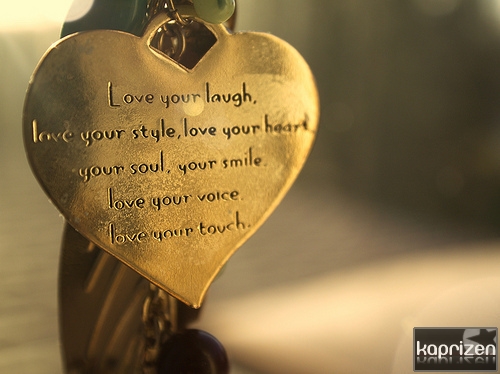 Love your laugh,
love your style, love your heart
your soul, your smile.
love your voice.
love your touch.
kaprizen